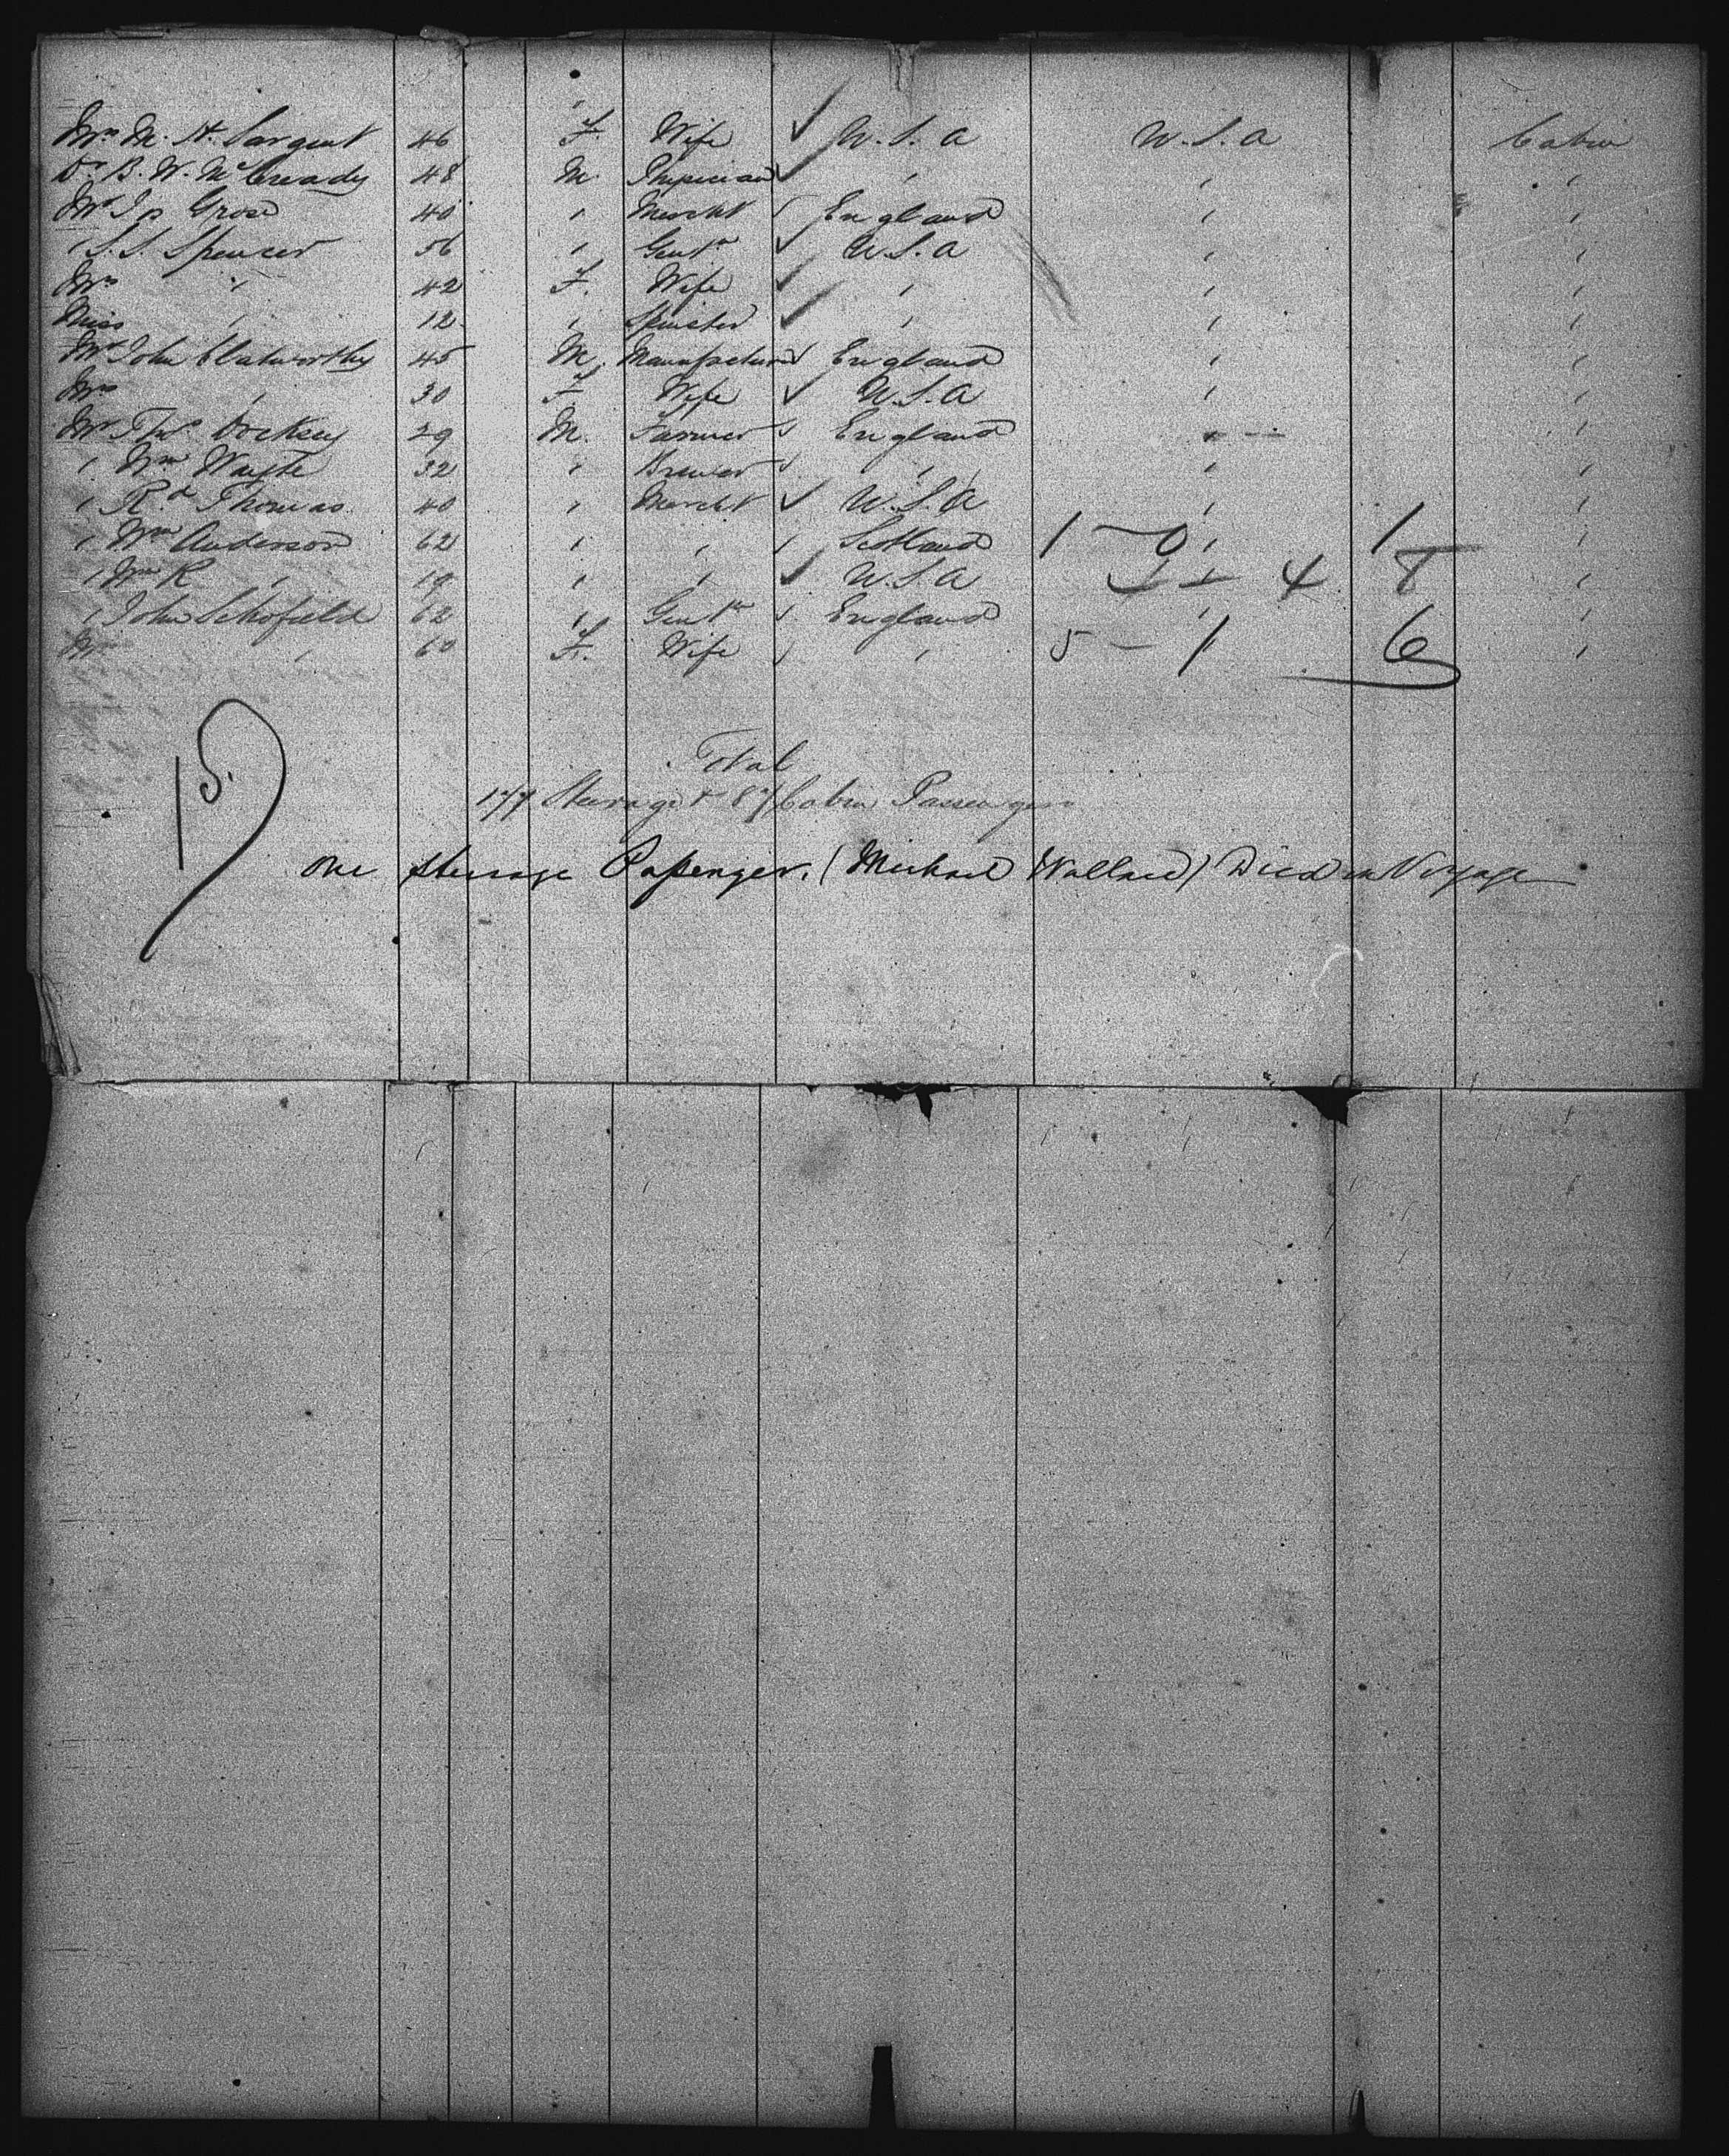 Mrs M. H. Sargent 46 F. Wife ✓ U.S.A U.S.A Cabin
Dr B. W. McCready 48 M. Physician ✓ " " "
Mr Js Grose 40 " Mercht ✓ England " "
" S. S. Spencer 56 " Gentn ✓ U.S.A " "
Mrs " 42 F. Wife ✓ " " "
Miss " 12 " Spinster ✓ " " "
Mr John Clatworthy 45 M. Manufacturer ✓ England " "
Mrs " 30 F. Wife ✓ U.S.A " "
Mr Thos 29 M. Farmer ✓ England " "
" Wm 32 " Brewer ✓ " " "
" Rd Thomas 40 " Mercht ✓ U.S.A " "
" Wm Anderson 62 " " Scotland " "
" Wm R " 19 " " ✓ U.S.A "
" John Schofield 62 " Gentn ✓ England " "
Mrs " 60 F. Wife ✓ " "
1 0 1
4 8
5 - 1 6
15
Total
177 Steerage & 87 Cabin Passengers
One steerage Passenger. (Michael Wallace) Died on Voyage